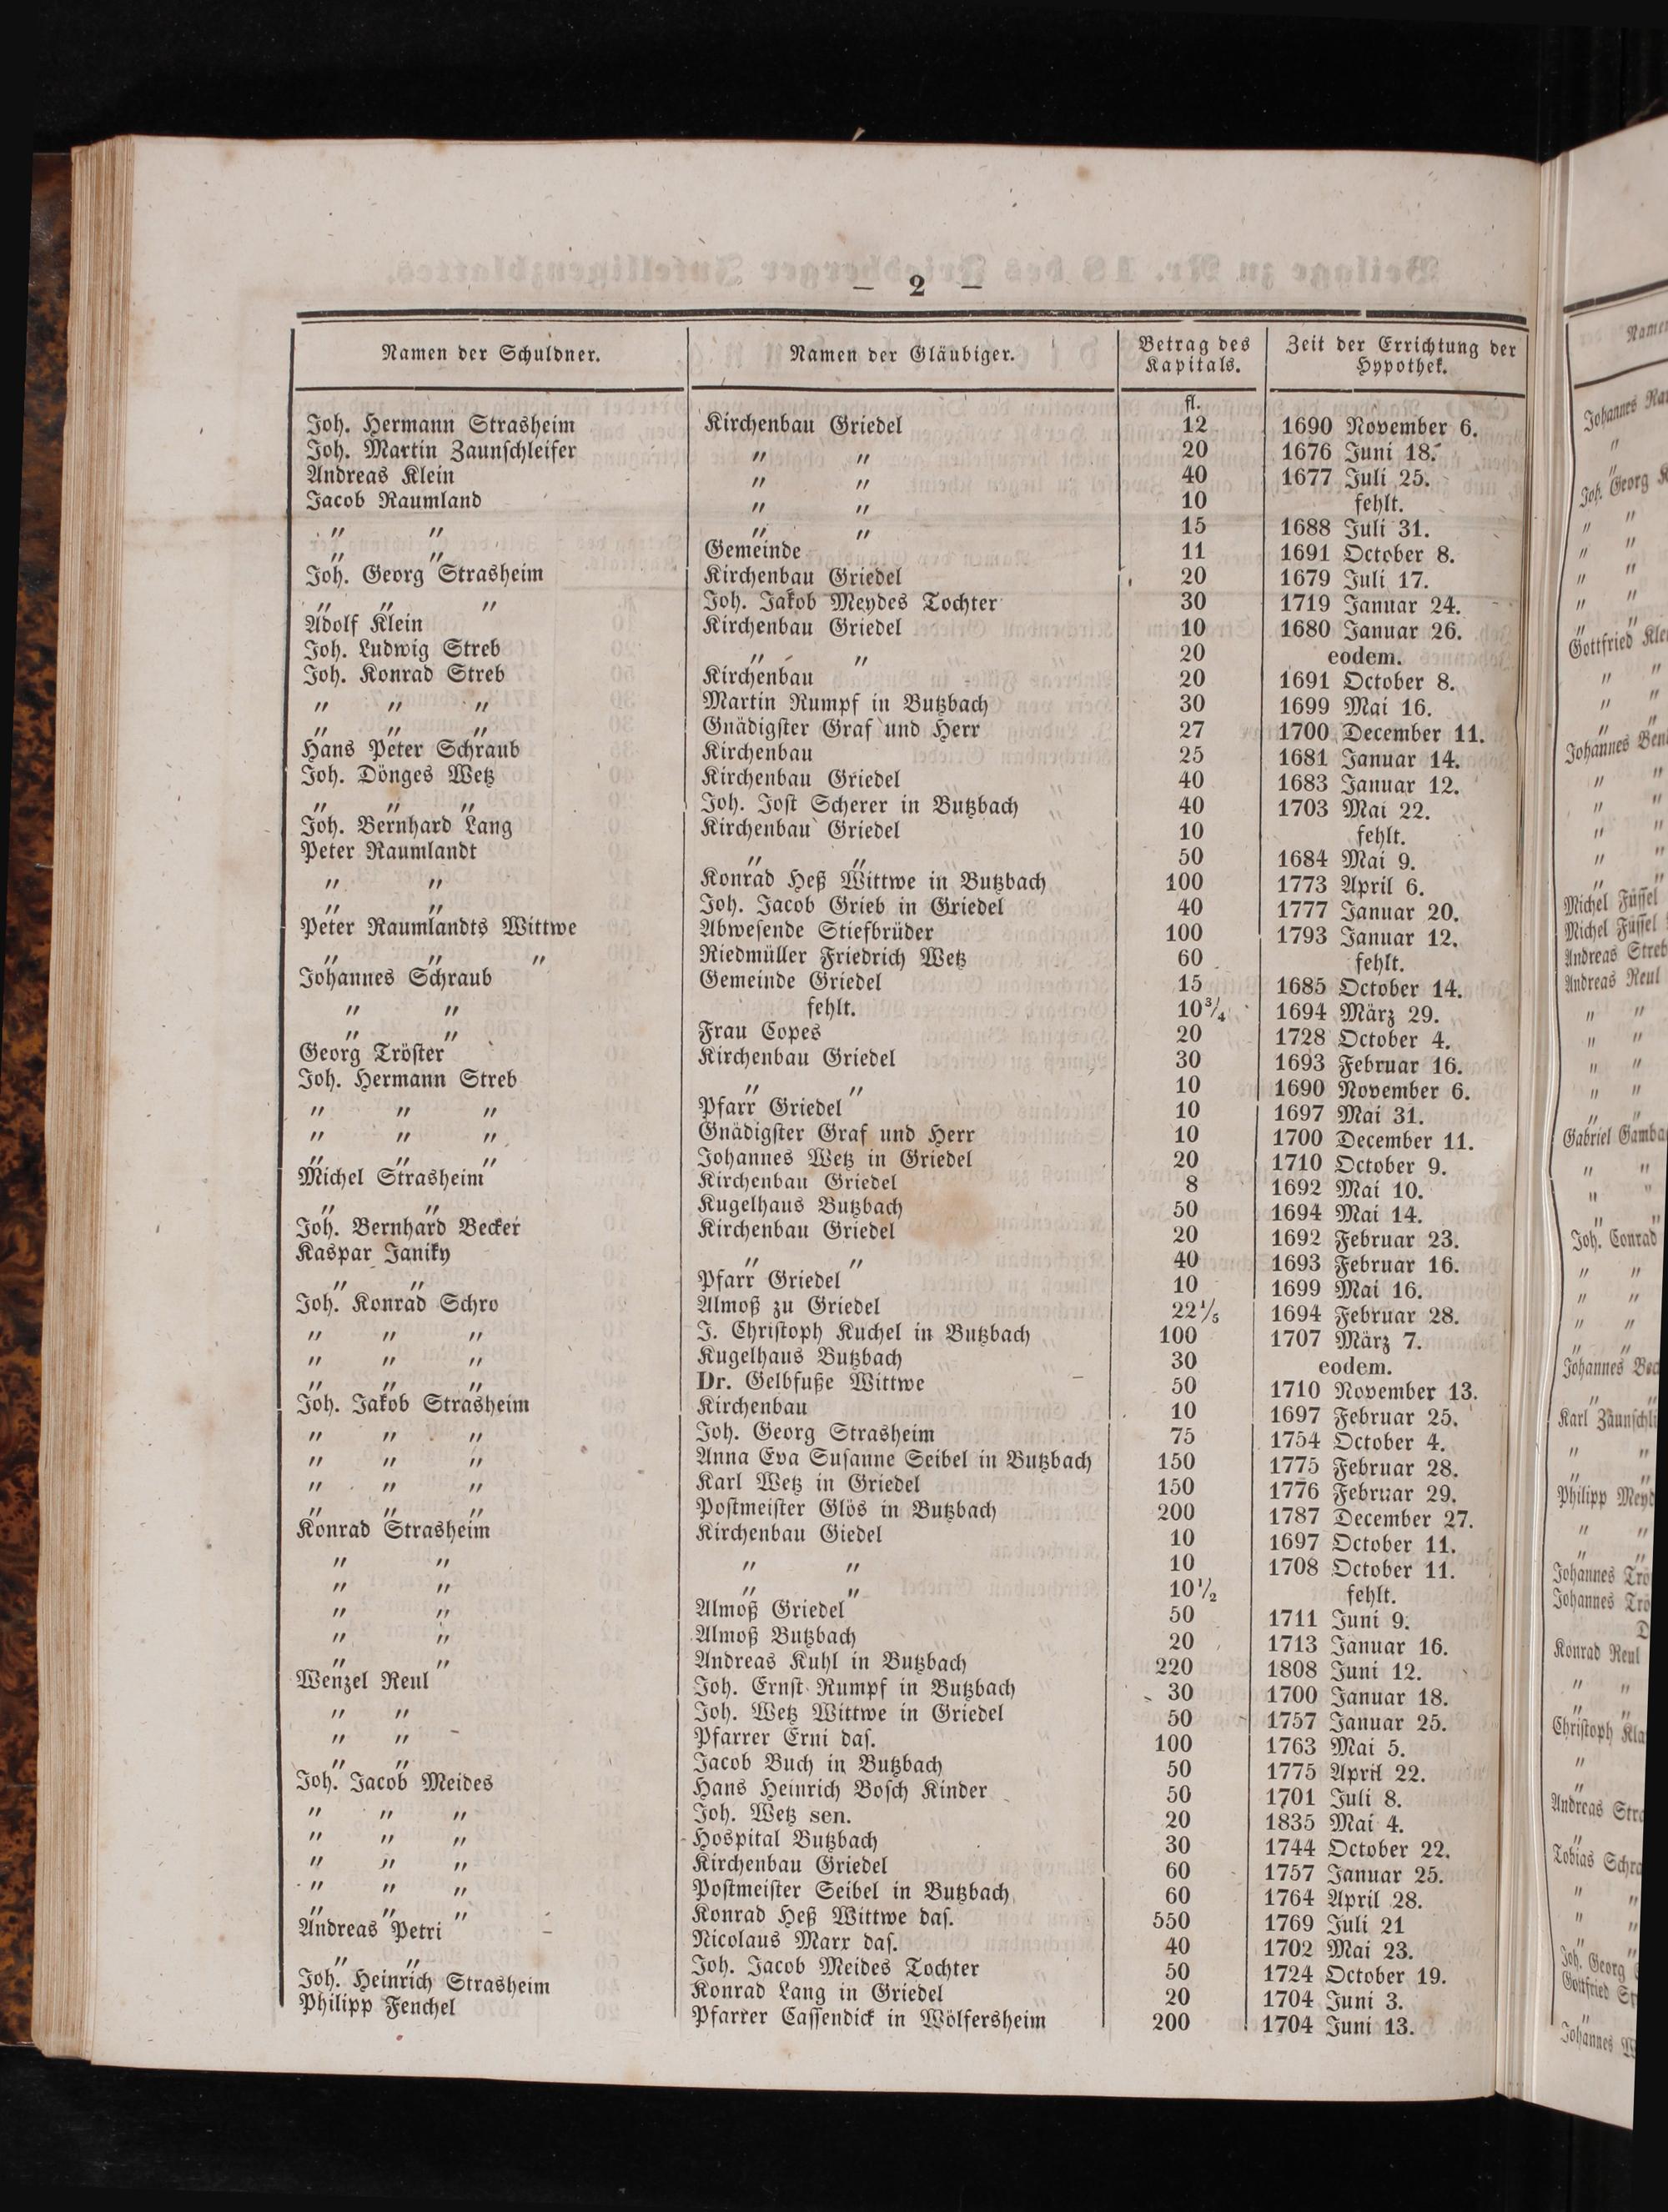 — 2 —
Namen der Schuldner. Namen der Gläubiger. Betrag des Kapitals. Zeit der Errichtung der Hypothek.
fl.
Joh. Hermann Strasheim Kirchenbau Griedel 12 1690 November 6.
Joh. Martin Zaunschleifer " " 20 1676 Juni 18.
Andreas Klein " " 40 1677 Juli 25.
Jacob Raumland " " 10 fehlt.
" " " " 15 1688 Juli 31.
" " Gemeinde 11 1691 October 8.
Joh. Georg Strasheim Kirchenbau Griedel 20 1679 Juli 17.
" " " Joh. Jakob Meydes Tochter 30 1719 Januar 24.
Adolf Klein Kirchenbau Griedel 10 1680 Januar 26.
Joh. Ludwig Streb " " 20 eodem.
Joh. Konrad Streb Kirchenbau 20 1691 October 8.
" " " Martin Rumpf in Butzbach 30 1699 Mai 16.
" " " Gnädigster Graf und Herr 27 1700 December 11.
Hans Peter Schraub Kirchenbau 25 1681 Januar 14.
Joh. Dönges Wetz Kirchenbau Griedel 40 1683 Januar 12.
" " " Joh. Jost Scherer in Butzbach 40 1703 Mai 22.
Joh. Bernhard Lang Kirchenbau Griedel 10 fehlt.
Peter Raumlandt " " 50 1684 Mai 9.
" " Konrad Heß Wittwe in Butzbach 100 1773 April 6.
" " Joh. Jacob Grieb in Griedel 40 1777 Januar 20.
Peter Raumlandts Wittwe Abwesende Stiefbrüder 100 1793 Januar 12.
" " " Riedmüller Friedrich Wetz 60 fehlt.
Johannes Schraub Gemeinde Griedel 15 1685 October 14.
" " fehlt. 10¾ 1694 März 29.
" " Frau Copes 20 1728 October 4.
Georg Tröster Kirchenbau Griedel 30 1693 Februar 16.
Joh. Hermann Streb " " 10 1690 November 6.
" " " Pfarr Griedel 10 1697 Mai 31.
" " " Gnädigster Graf und Herr 10 1700 December 11.
" " " Johannes Wetz in Griedel 20 1710 October 9.
Michel Strasheim Kirchenbau Griedel 8 1692 Mai 10.
" " Kugelhaus Butzbach 50 1694 Mai 14.
Joh. Bernhard Becker Kirchenbau Griedel 20 1692 Februar 23.
Kaspar Janiky " " 40 1693 Februar 16.
" " Pfarr Griedel 10 1699 Mai 16.
Joh. Konrad Schro Almoß zu Griedel 22⅕ 1694 Februar 28.
" " " J. Christoph Kuchel in Butzbach 100 1707 März 7.
" " " Kugelhaus Butzbach 30 eodem.
" " " Dr. Gelbfuße Wittwe 50 1710 November 13.
Joh. Jakob Strasheim Kirchenbau 10 1697 Februar 25.
" " " Joh. Georg Strasheim 75 1754 October 4.
" " " Anna Eva Susanne Seibel in Butzbach 150 1775 Februar 28.
" " " Karl Wetz in Griedel 150 1776 Februar 29.
" " " Postmeister Glös in Butzbach 200 1787 December 27.
Konrad Strasheim Kirchenbau Giedel 10 1697 October 11.
" " " " 10 1708 October 11.
" " " " 10½ fehlt.
" " Almoß Griedel 50 1711 Juni 9.
" " Almoß Butzbach 20 1713 Januar 16.
" " Andreas Kuhl in Butzbach 220 1808 Juni 12.
Wenzel Reul Joh. Ernst Rumpf in Butzbach 30 1700 Januar 18.
" " Joh. Wetz Wittwe in Griedel 50 1757 Januar 25.
" " Pfarrer Erni das. 100 1763 Mai 5.
" " Jacob Buch in Butzbach 50 1775 April 22.
Joh. Jacob Meides Hans Heinrich Bosch Kinder 50 1701 Juli 8.
" " " Joh. Wetz sen. 20 1835 Mai 4.
" " " Hospital Butzbach 30 1744 October 22.
" " " Kirchenbau Griedel 60 1757 Januar 25.
" " " Postmeister Seibel in Butzbach 60 1764 April 28.
" " " Konrad Heß Wittwe das. 550 1769 Juli 21
Andreas Petri Nicolaus Marx das. 40 1702 Mai 23.
" " Joh. Jacob Meides Tochter 50 1724 October 19.
Joh. Heinrich Strasheim Konrad Lang in Griedel 20 1704 Juni 3.
Philipp Fenchel Pfarrer Cassendick in Wölfersheim 200 1704 Juni 13.